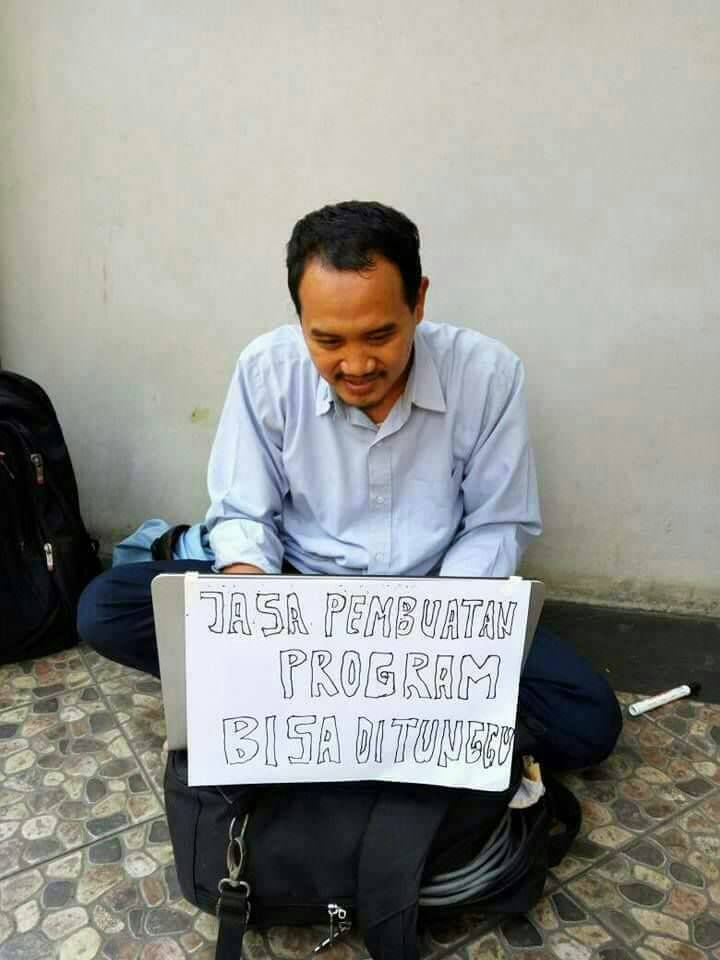 JASA PEMBUATAN
PROGRAM
BISA DITUNGGU